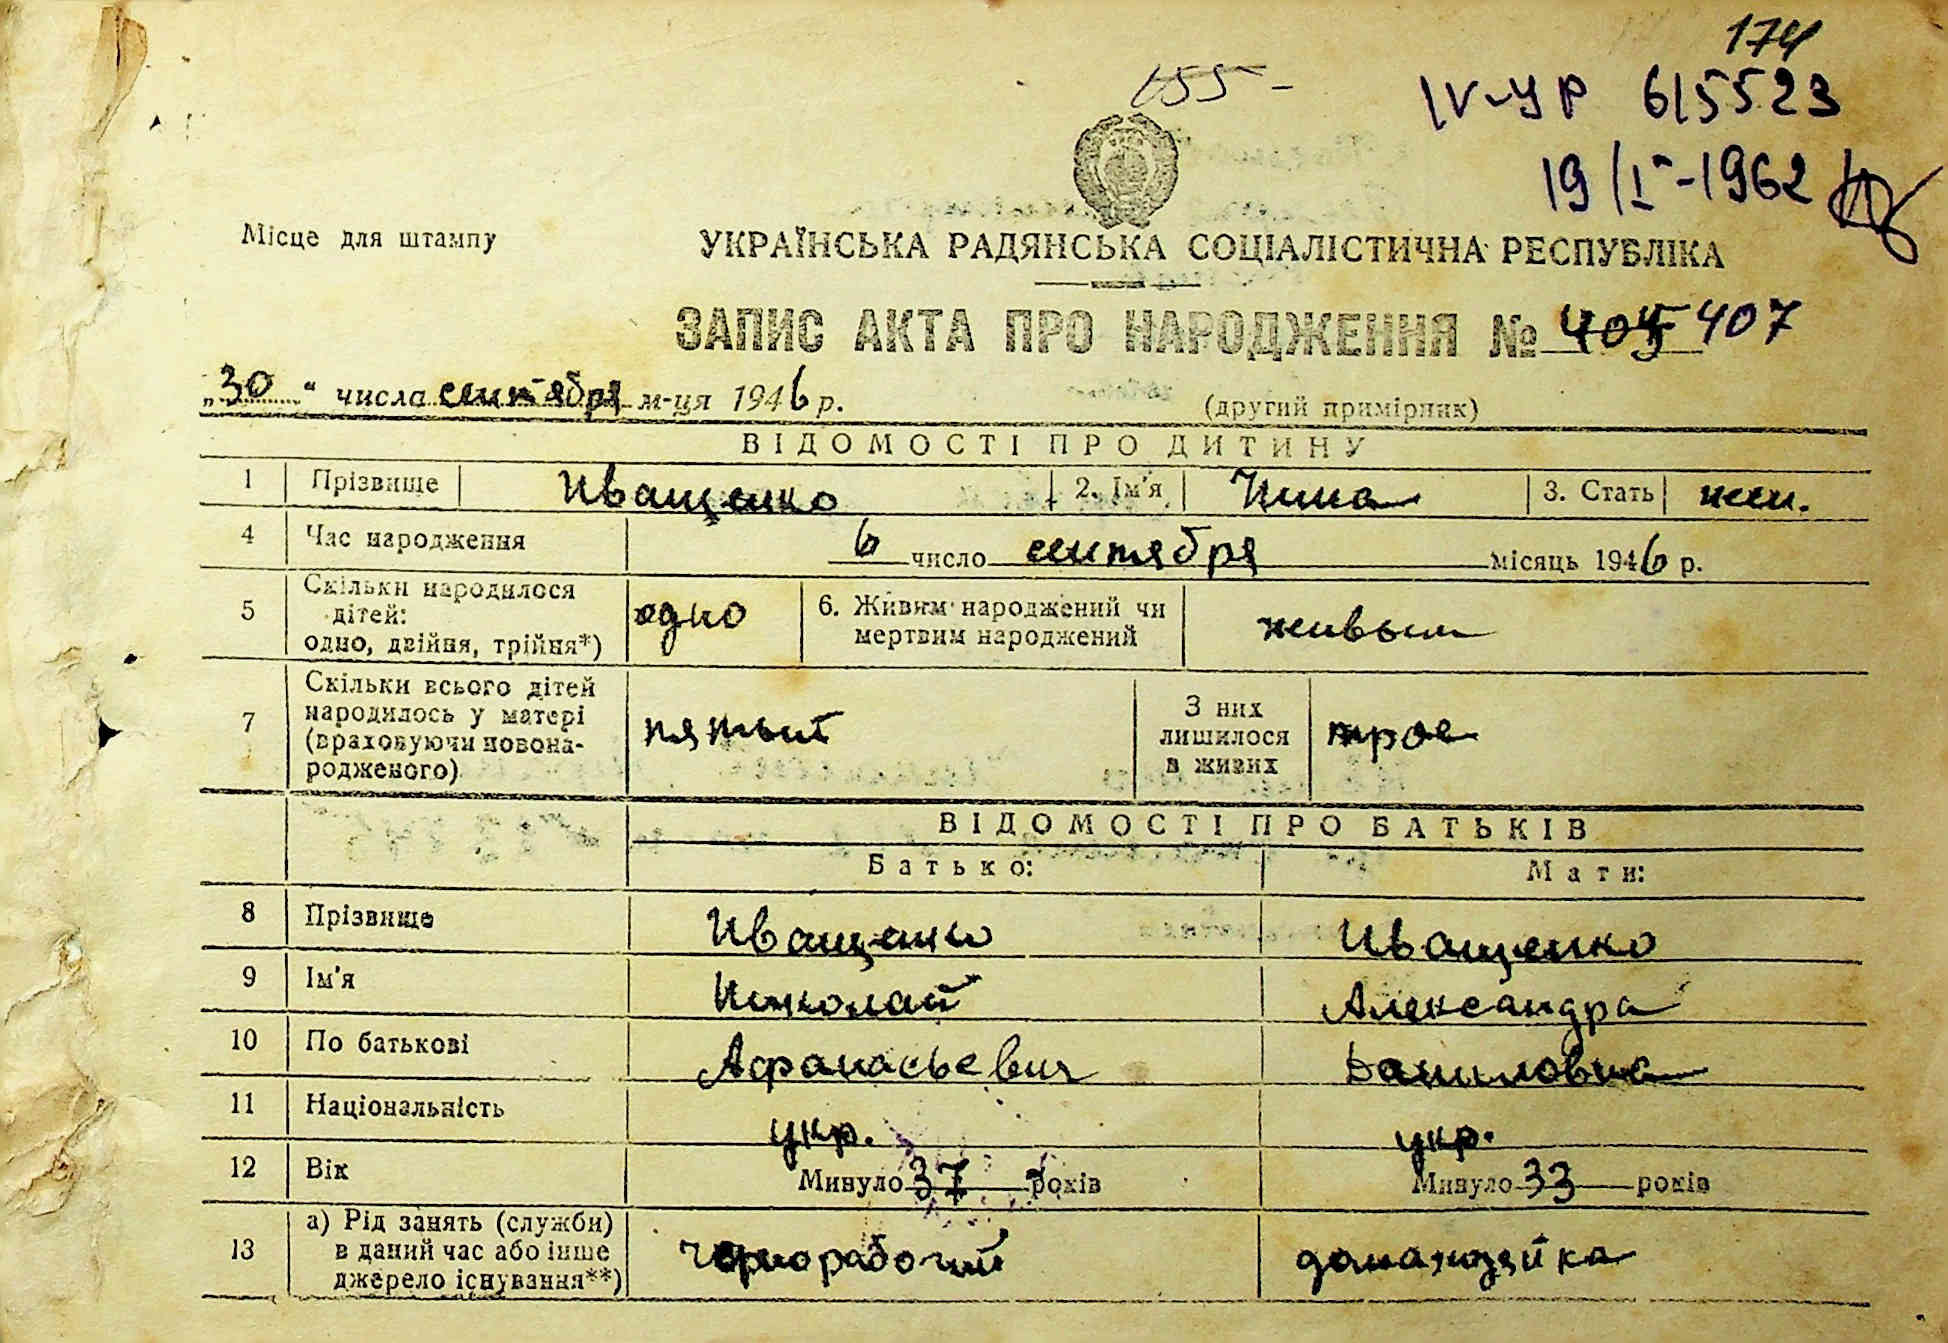 174
155 -
IV-УР 615523
19/I-1962
Місце для штампу
УКРАЇНСЬКА РАДЯНСЬКА СОЦІАЛІСТИЧНА РЕСПУБЛІКА
ЗАПИС АКТА ПРО НАРОДЖЕННЯ № 405 407
„30" числа сентября м-ця 1946 р.
(другий примірник)
ВІДОМОСТІ ПРО ДИТИНУ
1 Прізвище Иващенко 2. Ім'я Нина 3. Стать жен.
4 Час народження 6 число сентября місяць 1946 р.
5 Скільки народилося дітей: одно, двійня, трійня*) одно 6. Живим народжений чи мертвим народжений живым
7 Скільки всього дітей народилось у матері (враховуючи новонародженого) пятый З них лишилося в живих трое
ВІДОМОСТІ ПРО БАТЬКІВ
Батько: Мати:
8 Прізвище Иващенко Иващенко
9 Ім'я Николай Александра
10 По батькові Афанасьевич Даниловна
11 Національність укр. укр.
12 Вік Минуло 37 років Минуло 33 років
13 а) Рід занять (служби) в даний час або інше джерело існування**) чорнорабочий домахозяйка